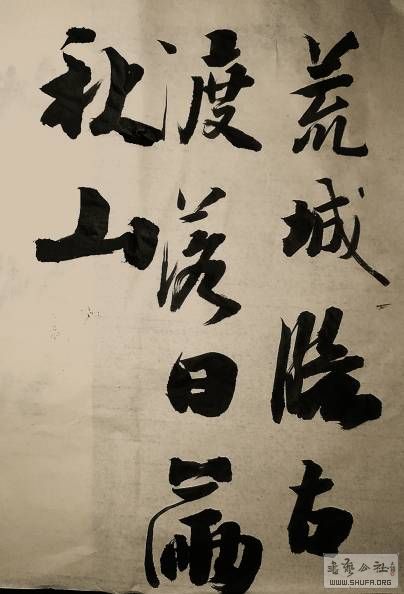 荒城臨古
渡落日滿
秋山
書藝公社
WWW.SHUFA.ORG